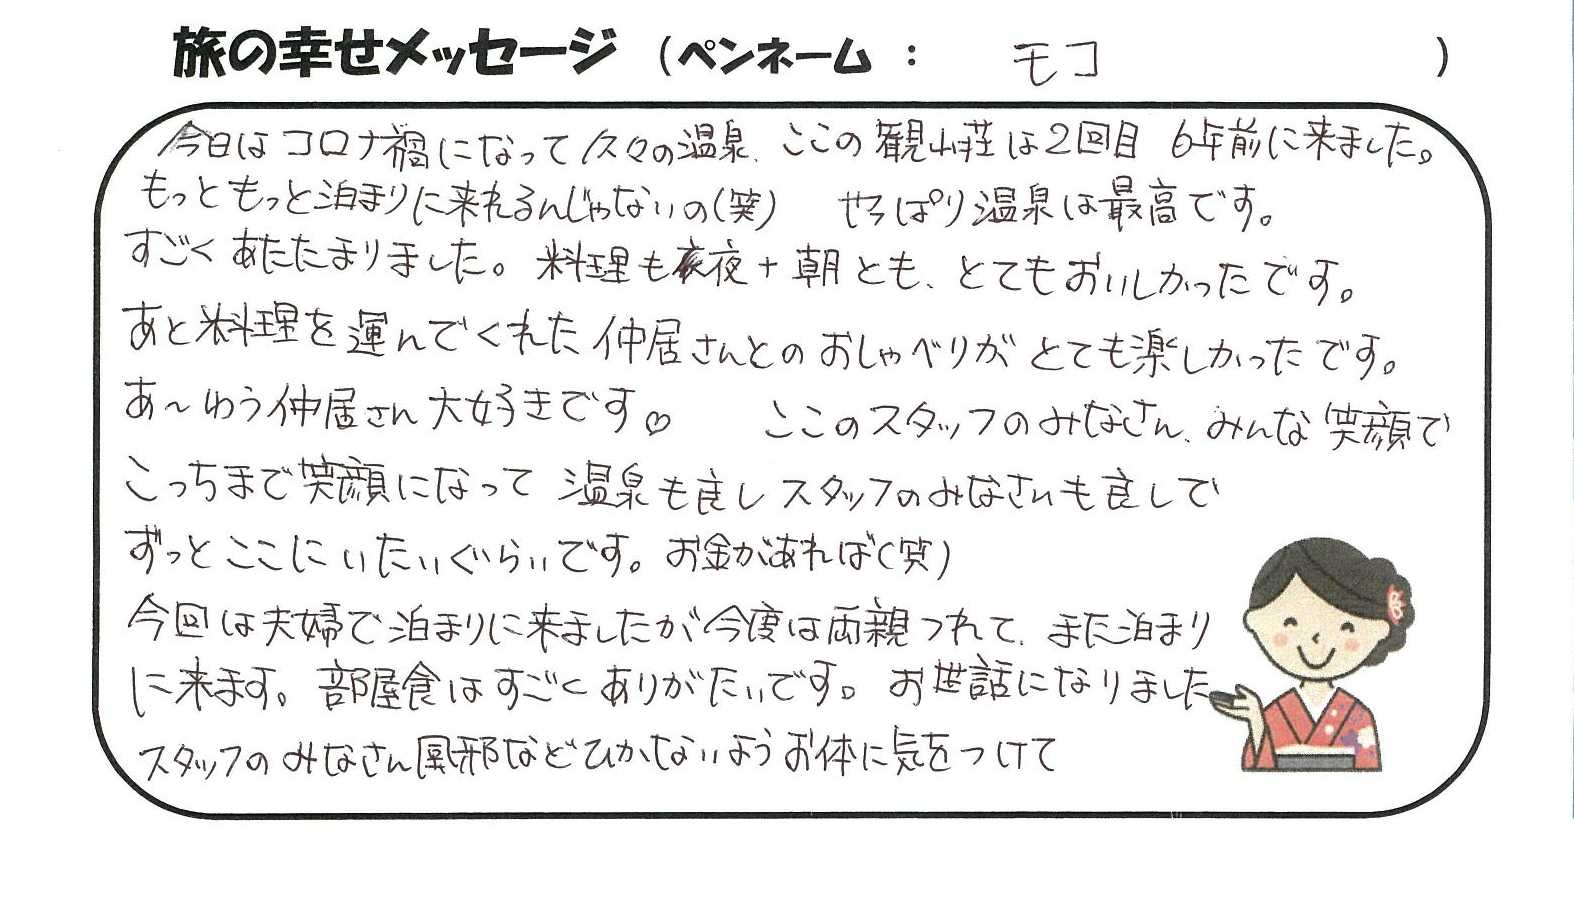 旅の幸せメッセージ（ペンネーム： モコ ）
今日はコロナ禍になって久々の温泉、ここの観山荘は2回目 6年前に来ました。
もっともっと泊まりに来れるんじゃないの(笑) やっぱり温泉は最高です。
すごくあたたまりました。料理も夜+朝とも、とてもおいしかったです。
あと料理を運んでくれた仲居さんとのおしゃべりがとても楽しかったです。
あ～ゆう仲居さん大好きです♡ ここのスタッフのみなさん、みんな笑顔で
こっちまで笑顔になって 温泉も良し スタッフのみなさんも良しで
ずっとここにいたいぐらいです。お金があれば(笑)
今回は夫婦で泊まりに来ましたが今度は両親つれて、また泊まり
に来ます。部屋食はすごくありがたいです。お世話になりました
スタッフのみなさん風邪などひかないようお体に気をつけて